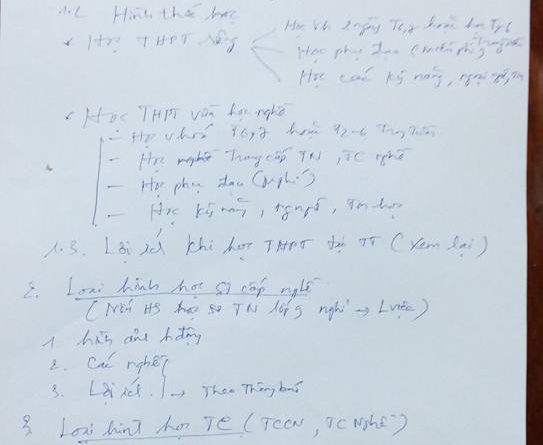 1.2 Hình thức học
* Học THPT riêng
Học vh 2 ngày T6,7 hoặc học
Học phụ đạo (miễn phí)
Học các kỹ năng, ngoại ngữ, tin
* Học THPT vừa học nghề
- Học văn hoá T6,7 hoặc T2-6
- Học nghề trung cấp TN, TC nghề
- Học phụ đạo
- Học kỹ năng, ng ngữ, Tin học
1.3. Lợi ích khi học THPT tại TT (xem lại)
2. Loại hình học sơ cấp nghề
(Nếu HS học TN lớp 9 nghỉ → Lviệc)
1
2. Các nghề
3. Lợi ích. → Theo Thông báo
3. Loại hình học TC (TCCN, TC Nghề)